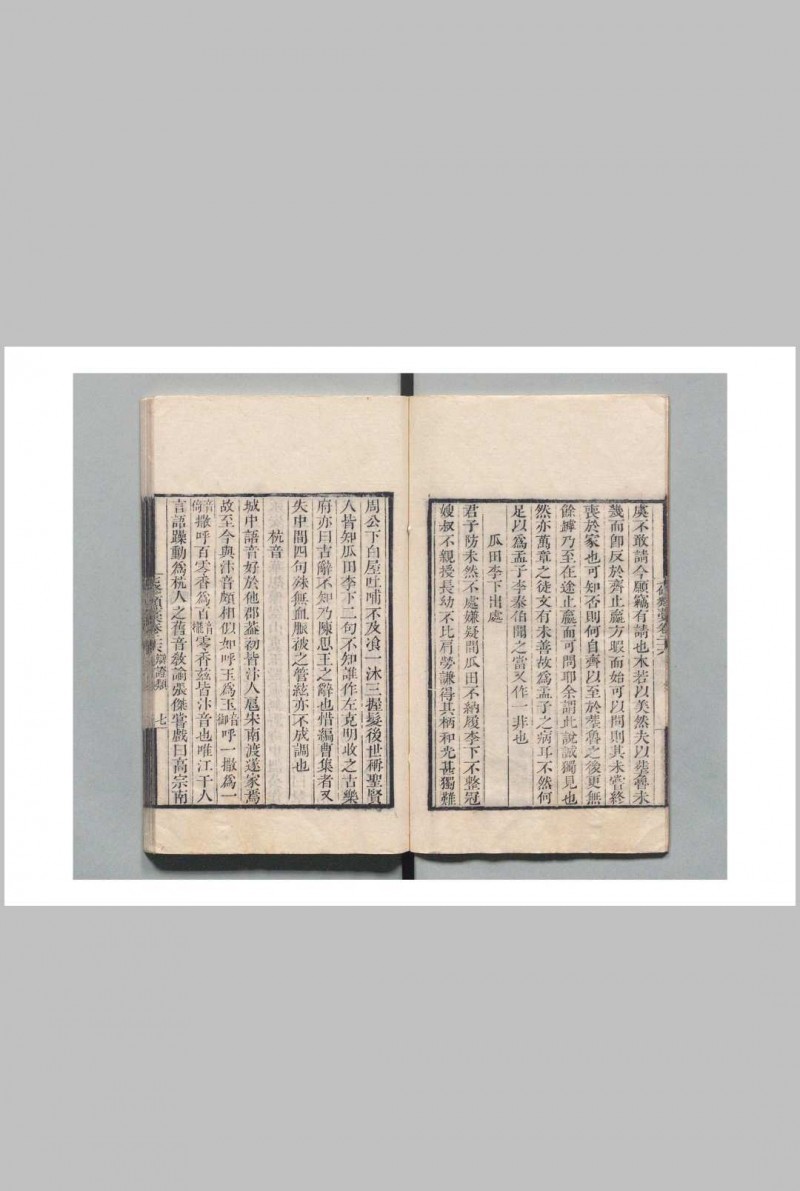 虞不敢請今願竊有請也木若以美然夫以葬魯未
幾而卽反於齊止嬴方暇而始可以問則其未嘗終
喪於家也可知否則何自齊以至於葬魯之後更無
餘暇乃至在途止嬴而可問耶余謂此說誠獨見也
然亦萬章之徒文有未善故爲孟子之病耳不然何
足以爲孟子李泰伯聞之當又作一非也
瓜田李下出處
君子防未然不處嫌疑間瓜田不納履李下不整冠
嫂叔不親授長幼不比肩勞謙得其柄和光甚獨難
周公下白屋吐哺不及飡一沐三握髮後世稱聖賢
人皆知瓜田李下二句不知誰作左克明收之古樂
府亦曰古辭不知乃陳思王之辭也惜編曹集者又
失中間四句殊無血脈被之管絃亦不成調也
杭音
城中語音好於他郡葢初皆汴人扈宋南渡遂家焉
故至今與汴音頗相似如呼玉爲玉音御呼一撒爲一
音倚撒呼百零香爲百音擺零香茲皆汴音也唯江干人
言語躁動爲杭人之舊音敎諭張傑嘗戲曰高宗南
七修類稾卷二十六 辯證類 七